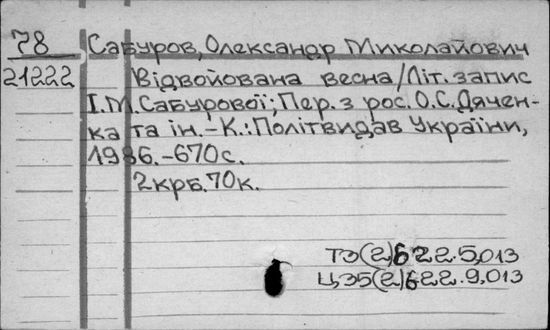 78 Сабуров, Олександр Миколайович
21222 Відвойована весна/Літ. запис
І.М.Сабурової; Пер. з рос. О.С.Дячен-
ка та ін.-К.: Політвидав України,
1986.-670с.
2крб.70к.
Т3(2)622.5,013
Ц35(2)622.9,013